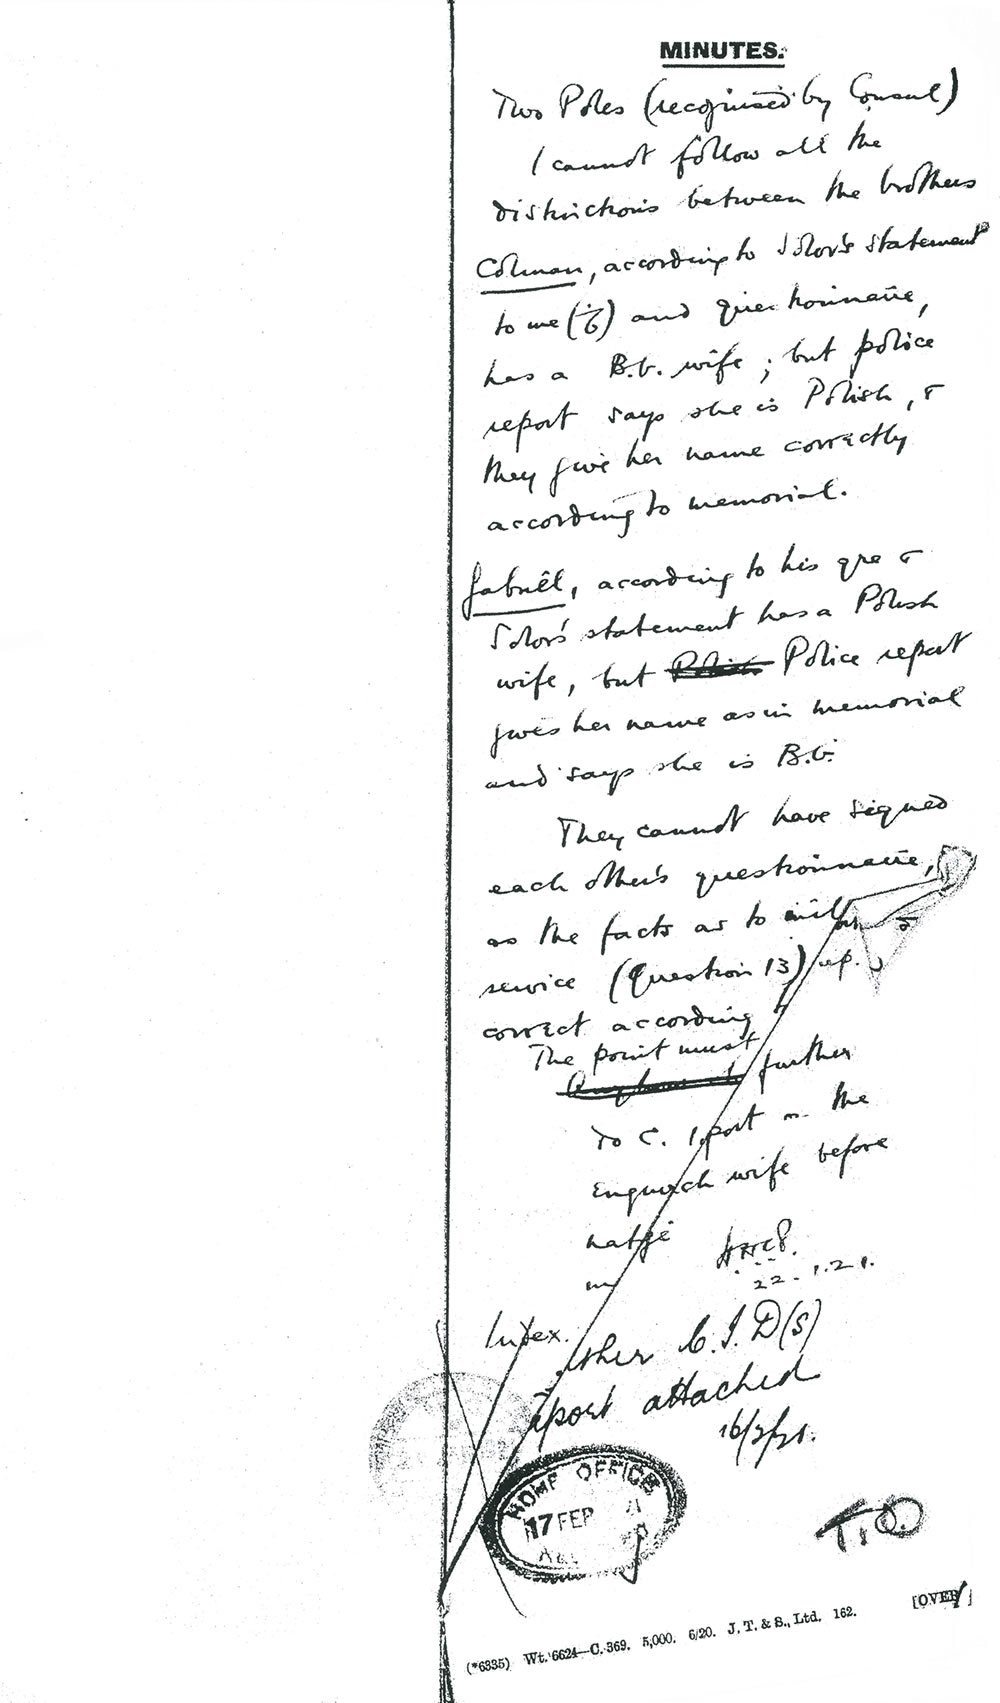 MINUTES.
Two Poles (recognised by Consul)
I cannot follow all the
distinctions between the brothers
Colman, according to Solor's statement
to me () and questionnaire,
has a B.b. wife; but police
report says she is Polish, &
they give her name correctly
according to memorial.
Gabriel, according to his qre &
Solor's statement has a Polish
wife, but Polish Police report
gives her name as in memorial
and says she is B.b.
They cannot have signed
each other's questionnaire,
as the facts as to
service (Question 13) rep.
correct according
The point must
further
To C. port the
wife before
22.1.21.
Index.
ther C.I.D(S)
eport attached
16/2/21.
HOME OFFICE
17 FEB 21
T.O.
[OVER]
(*6335) Wt. 6624—C. 369. 5,000. 6/20. J. T. & S., Ltd. 162.